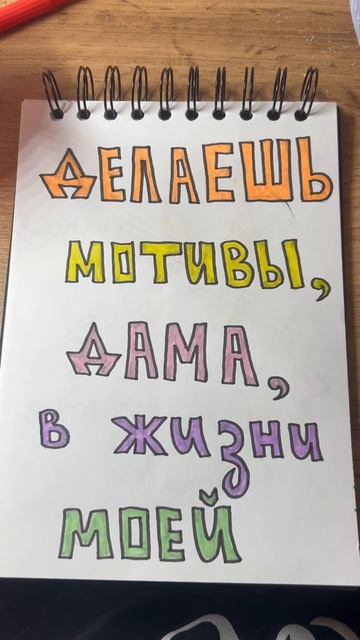 ДЕЛАЕШЬ
МОТИВЫ,
ДАМА,
В ЖИЗНИ
МОЕЙ